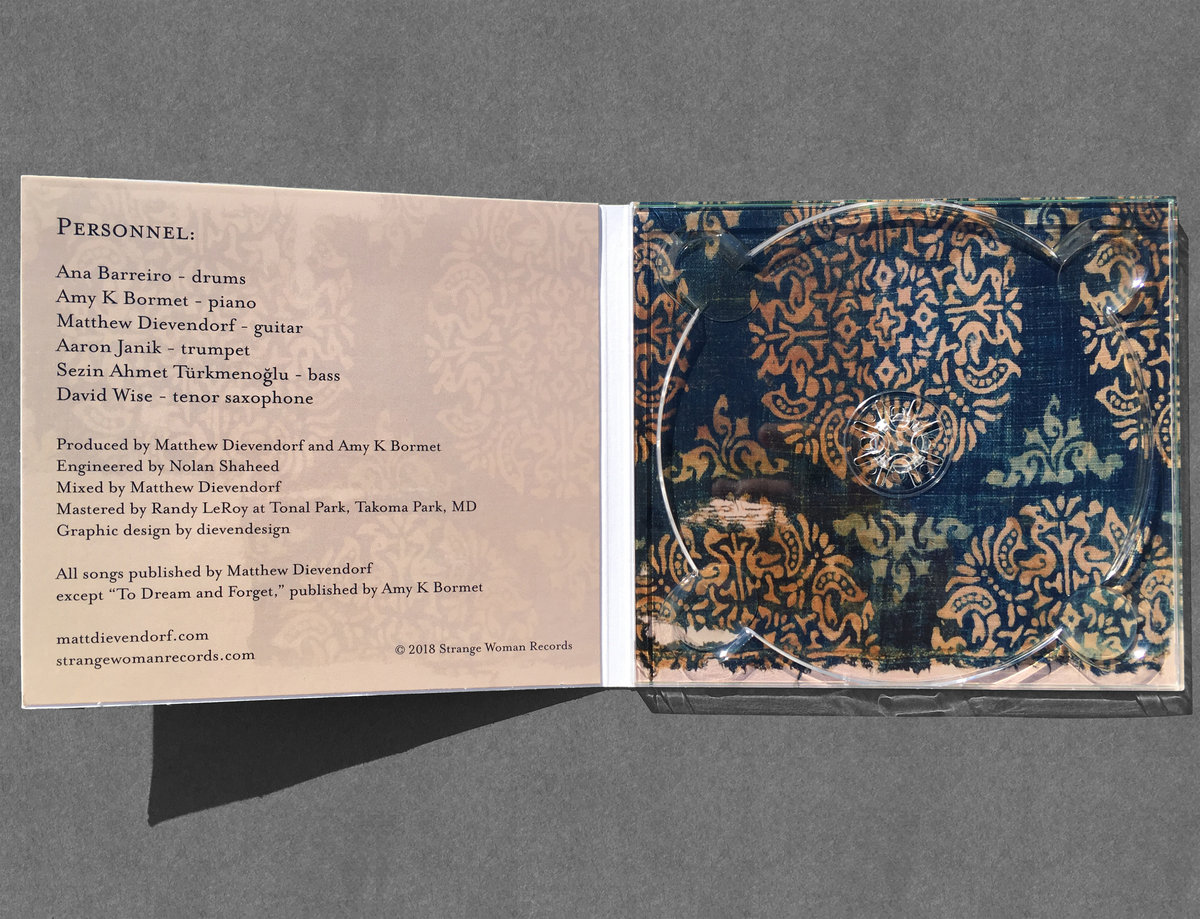 PERSONNEL:
Ana Barreiro - drums
Amy K Bormet - piano
Matthew Dievendorf - guitar
Aaron Janik - trumpet
Sezin Ahmet Türkmenoğlu - bass
David Wise - tenor saxophone
Produced by Matthew Dievendorf and Amy K Bormet
Engineered by Nolan Shaheed
Mixed by Matthew Dievendorf
Mastered by Randy LeRoy at Tonal Park, Takoma Park, MD
Graphic design by dievendesign
All songs published by Matthew Dievendorf
except “To Dream and Forget,” published by Amy K Bormet
mattdievendorf.com
strangewomanrecords.com
© 2018 Strange Woman Records